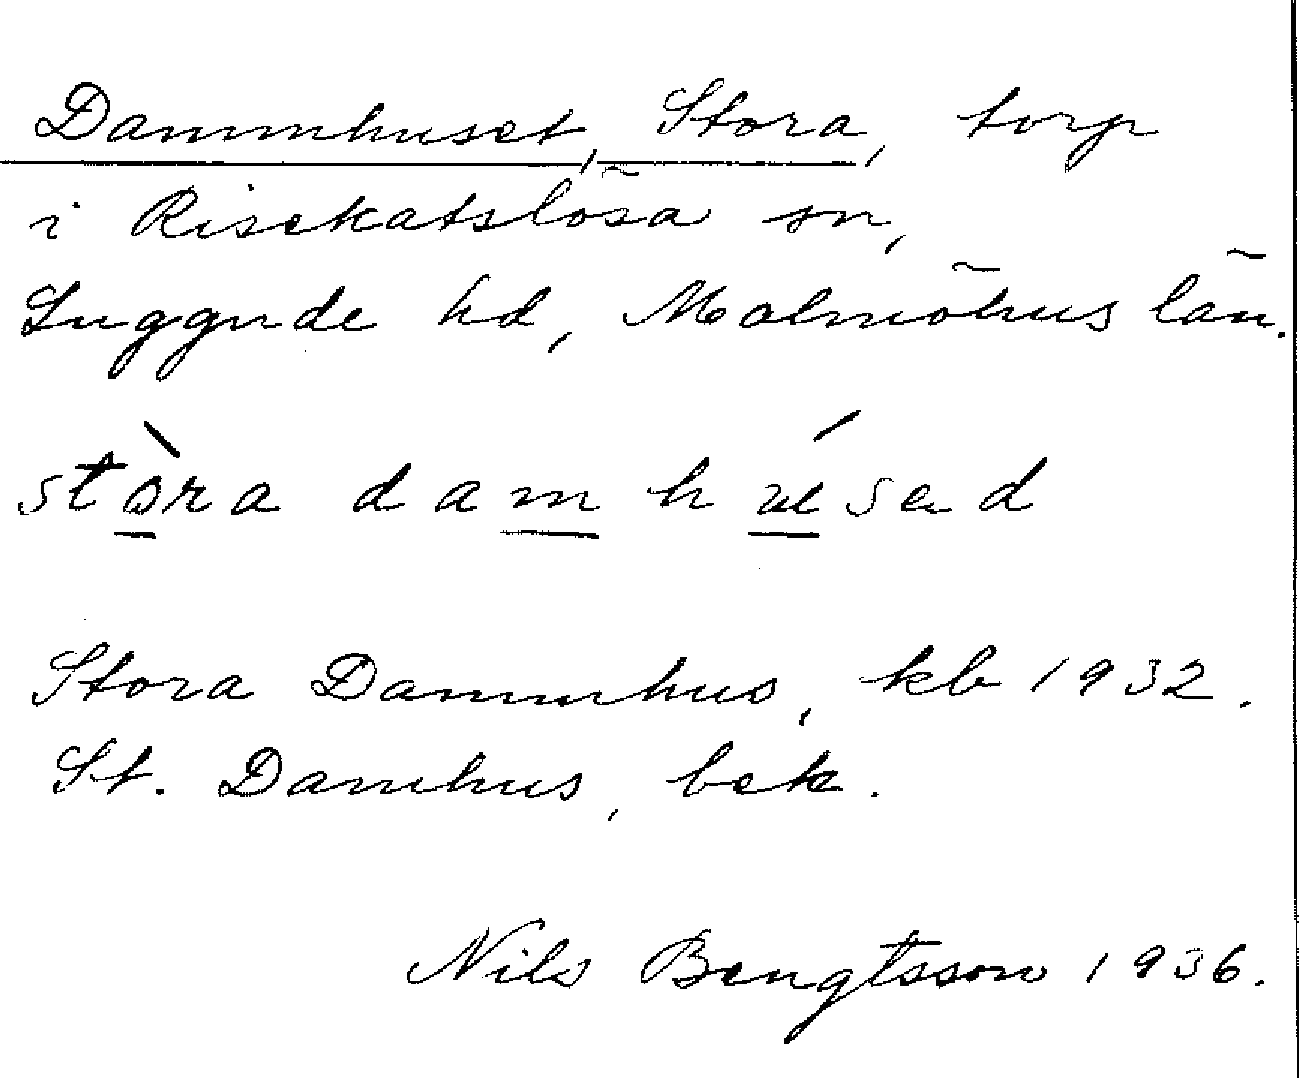 Dammhuset, Stora, torp
i Risekatslösa sn,
Luggude hd, Malmöhus län.
stòra dam húsed
Stora Dammhus, kb 1932.
St. Damhus, bek.
Nils Bengtsson 1936.